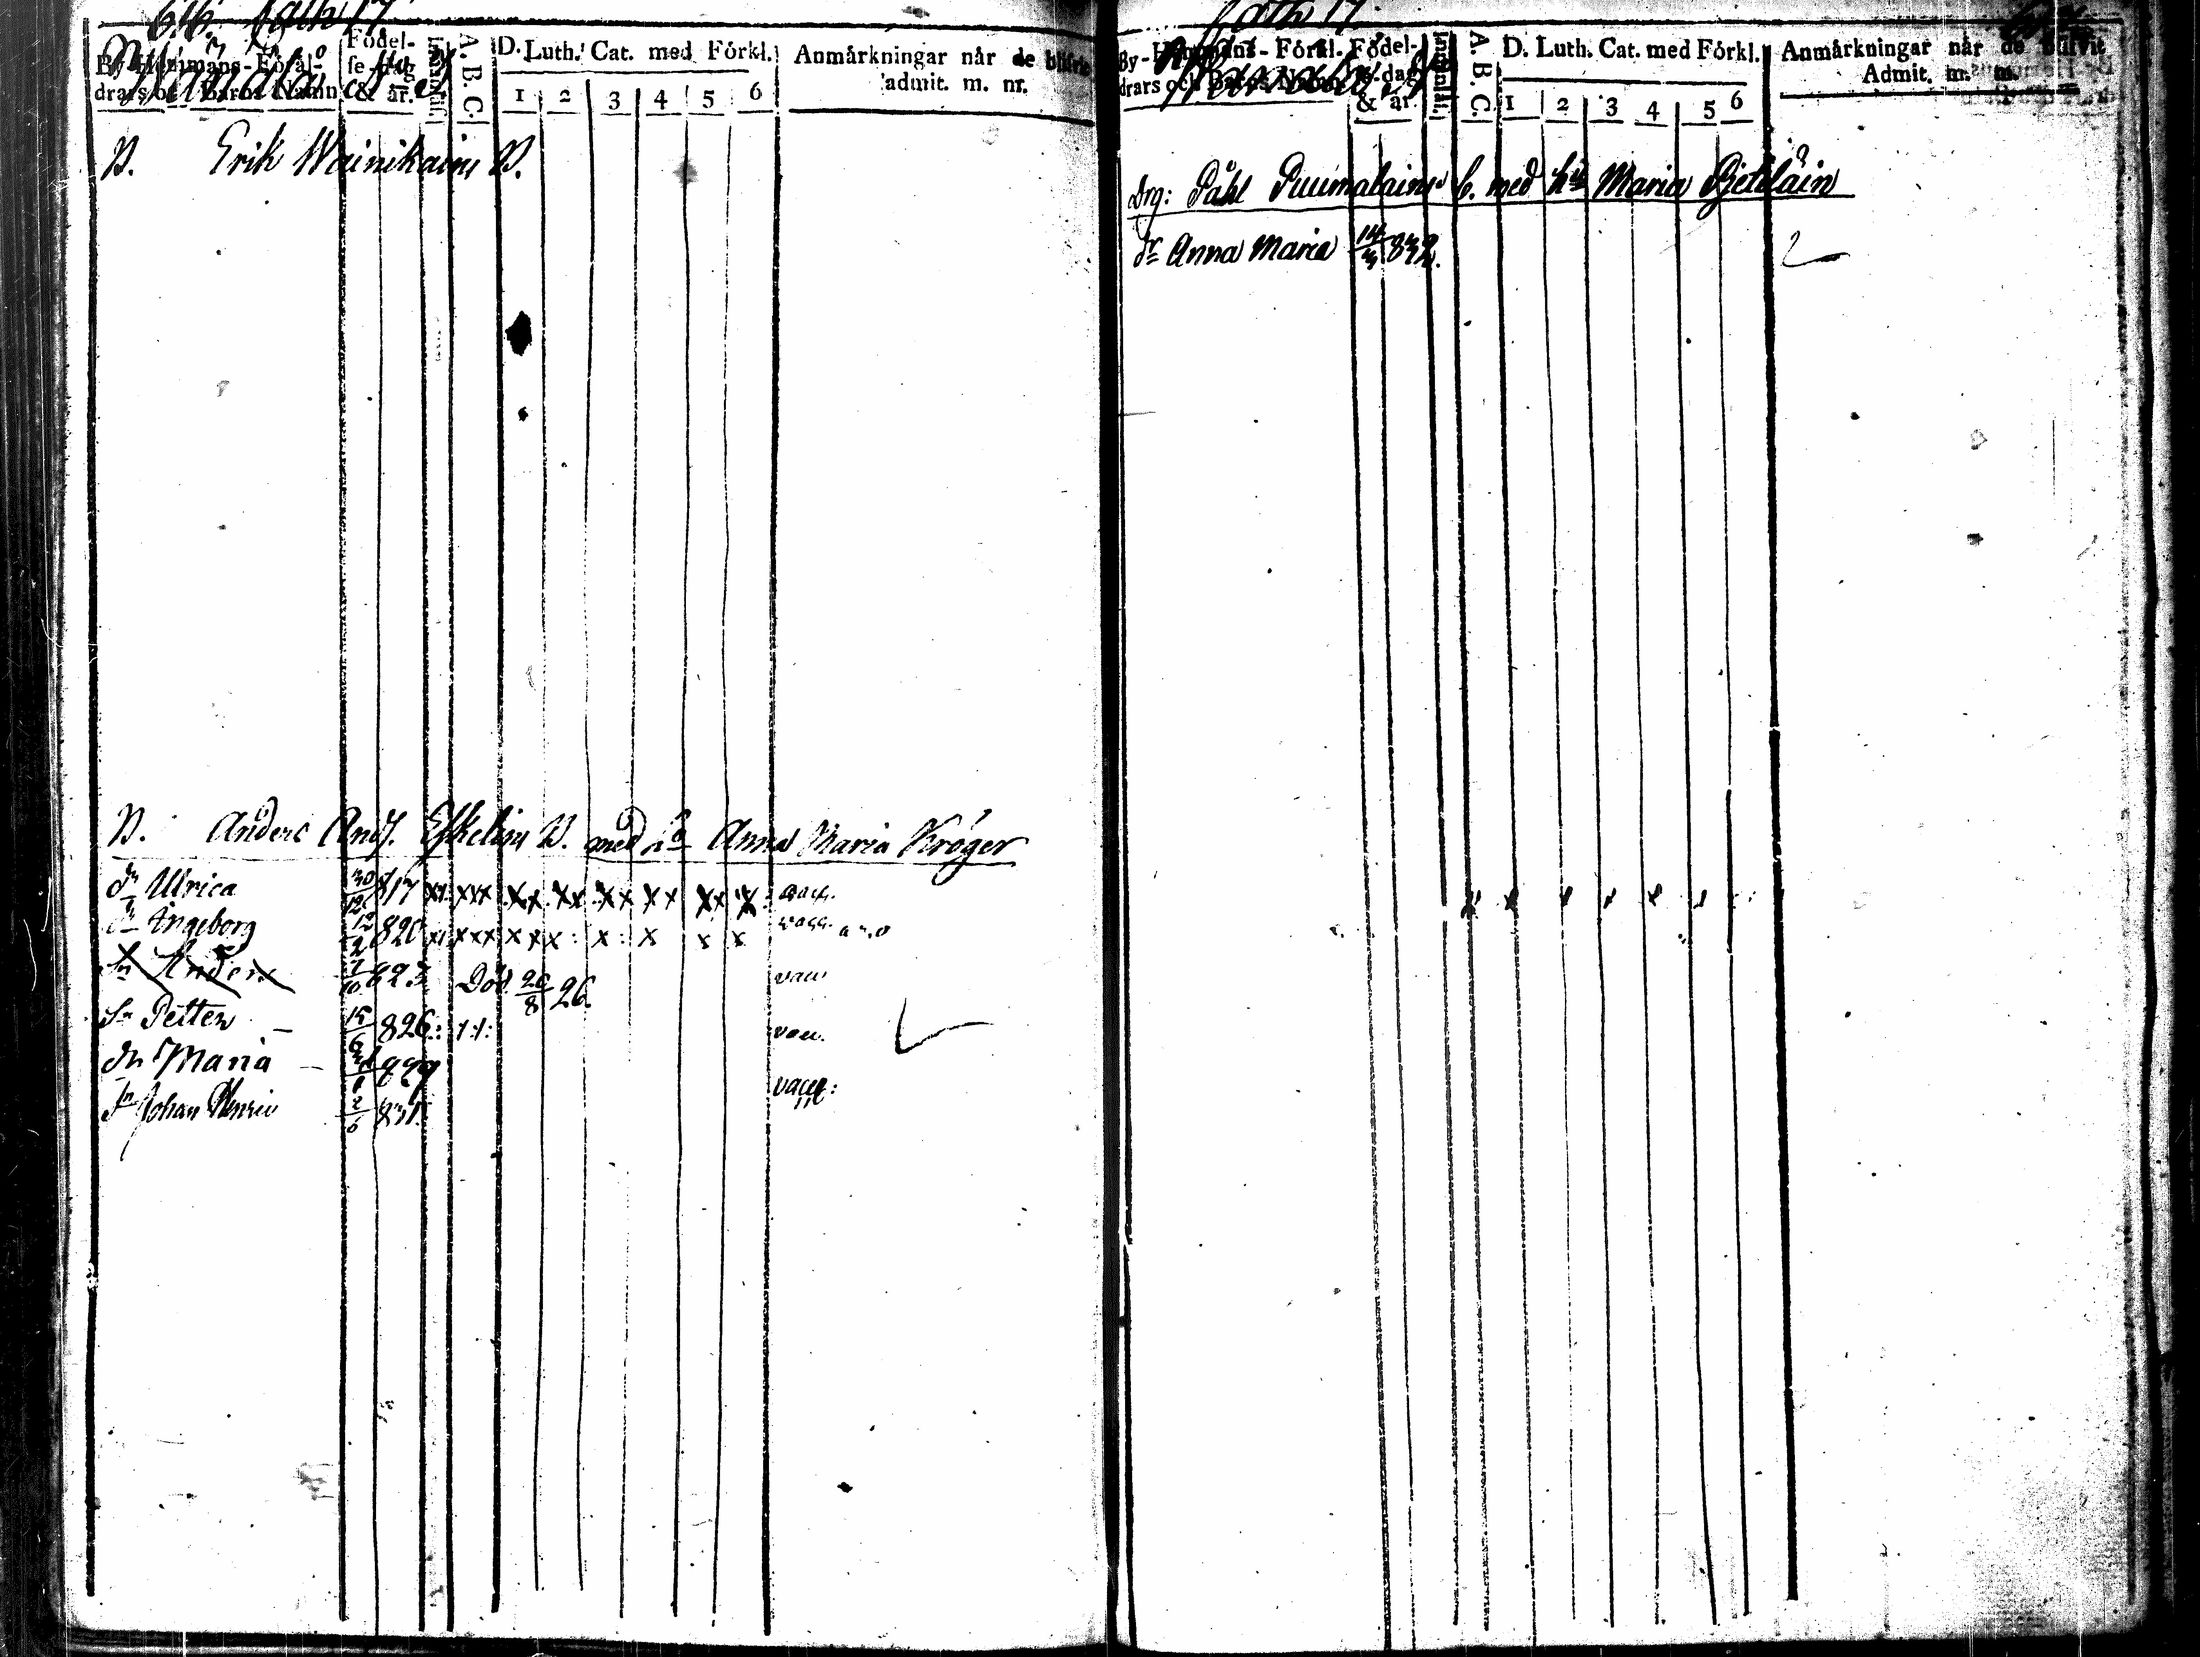 By-Hemmans-Föräl-
drars och Barns Namn
Födel-
se-dag
& år.
A. B. C.
D. Luth. Cat. med Förkl.
1 2 3 4 5 6
Anmärkningar når de blifvit
admit. m. m.
N. Erik Wainikains N.
N. Anders And. Eskelins N. med Anna Maria Kröger
dr Ulrica 30/12 817 xx xxx xx xx xx xx xx x
dr Ingeborg 12/9 820 x xxx x x x : x : x x x
Sn Anders 7/10 823 Död. 26/8 26. vacc
Sn Petter 15/6 826 : vacc.
dr Maria 829 vacc:
Sn Johan Henric 2/6 831.
By-Hemmans-Förål-
drars och Barns Namn
Födel-
se-dag
& år.
A. B. C.
D. Luth. Cat. med Förkl.
1 2 3 4 5 6
Anmärkningar når de blifvit
Admit. m. m.
Drg: Påhl Puumalains b. med hu Maria Pjetiläin
dr Anna Maria 832.